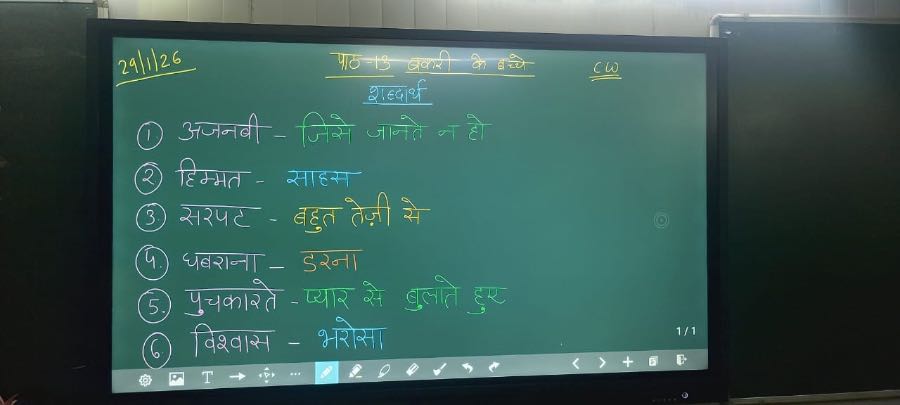 29/1/26
पाठ-13 बकरी के बच्चे
CW
शब्दार्थ
1. अजनबी - जिसे जानते न हो
2. हिम्मत - साहस
3. सरपट - बहुत तेज़ी से
4. घबराना - डरना
5. पुचकारते - प्यार से बुलाते हुए
6. विश्वास - भरोसा
1/1
T